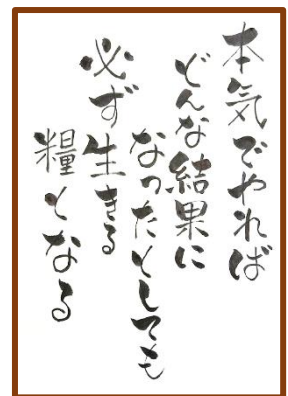 本気でやれば
どんな結果に
なったとしても
必ず生きる
糧となる